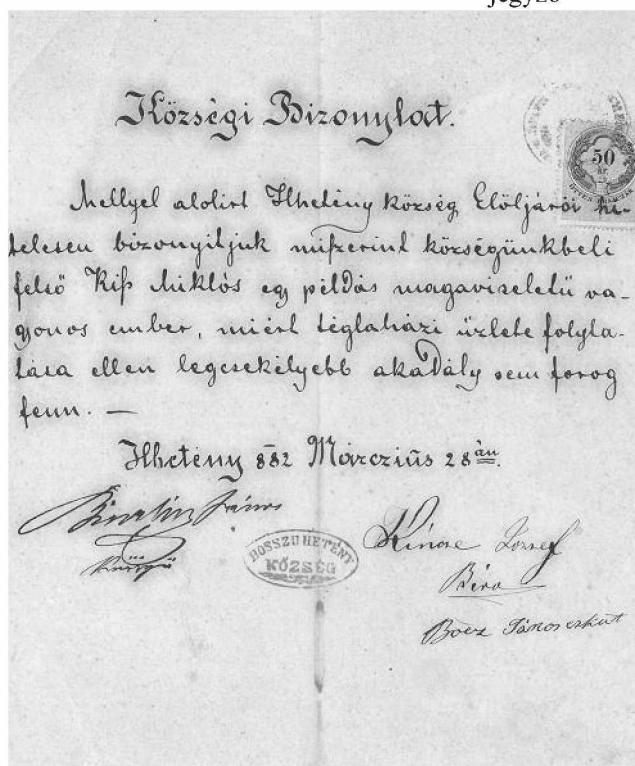 jegyző
Községi Bizonylat.
50
Mellyel alolirt Hhetény község Elöljárói hi-
telesen bizonyitjuk miszerint községünkbeli
felső Kiss Miklós egy példás magaviseletü va-
gyonos ember, miért téglaházi üzlete folyta-
tása ellen legcsekélyebb akadály sem forog
fenn. —
Hhetény 882 Márczius 28án.
János
HOSSZUHETÉNY
KÖZSÉG
József
Biró
János